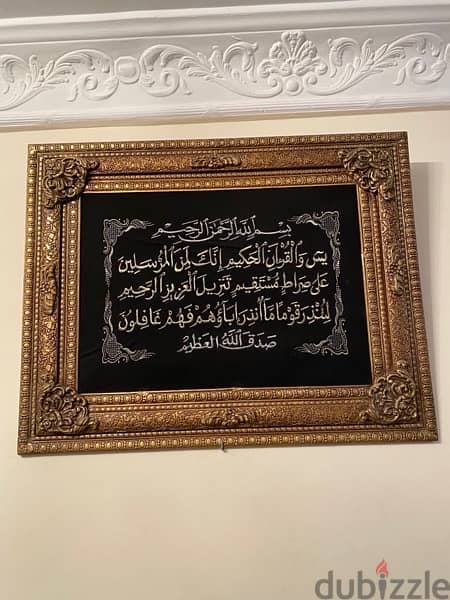 بسم الله الرحمن الرحيم
يس والقرآن الحكيم إنك لمن المرسلين
على صراط مستقيم تنزيل العزيز الرحيم
لتنذر قوما ما أنذر آباؤهم فهم غافلون
صدق الله العظيم
dubizzle